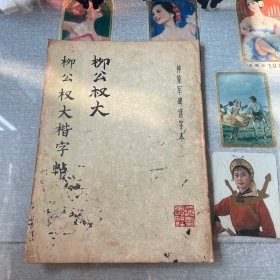 神策军碑选字本
柳公权大
柳公权大楷字帖